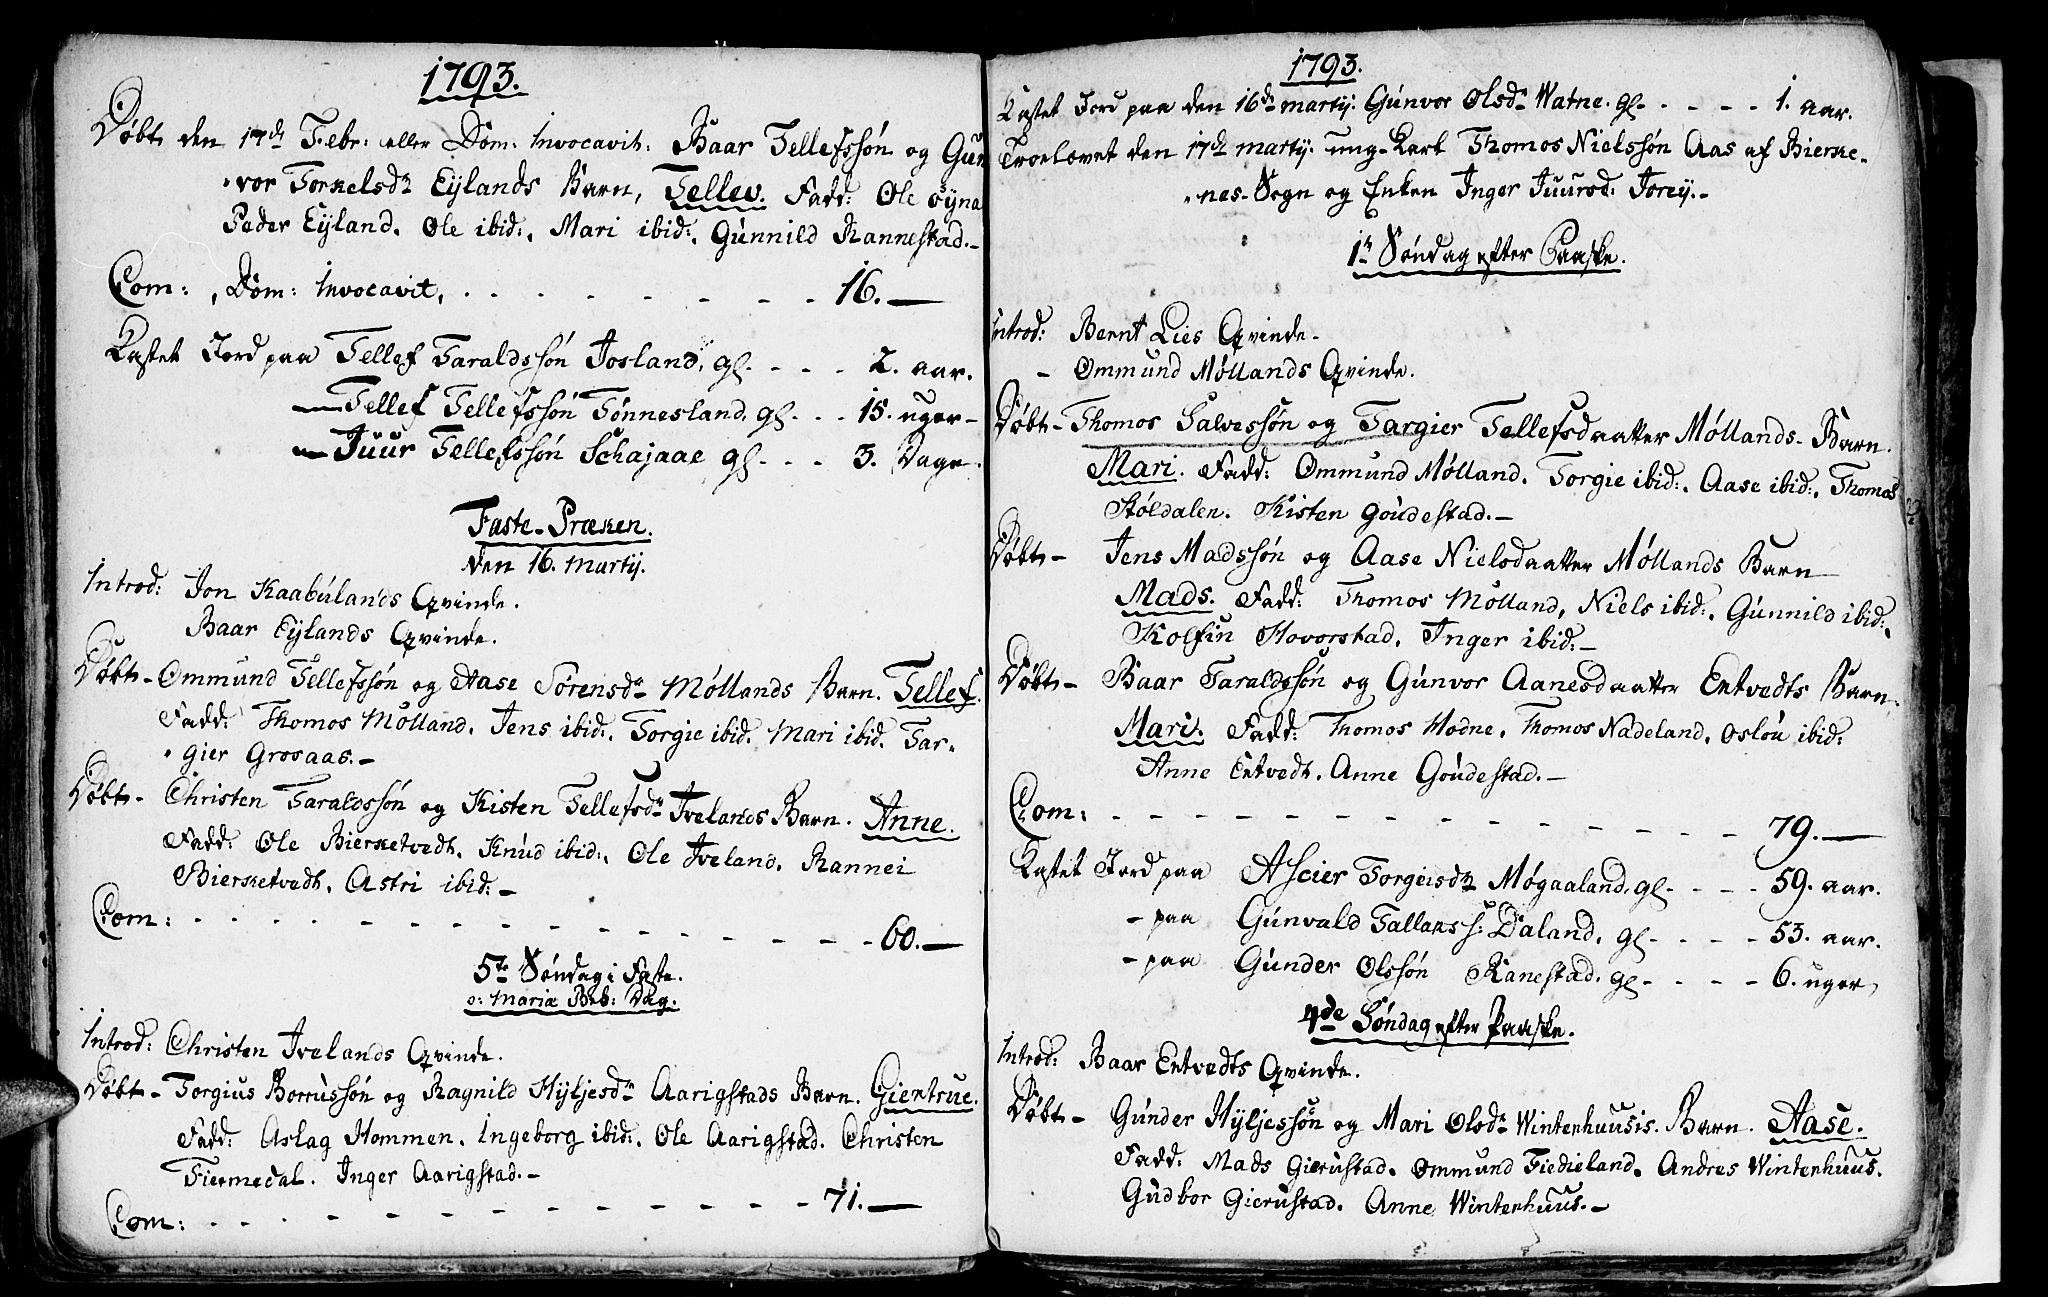 1793.
Døbt den 17de Febr: eller Dom: Invocavit: Baar Tellefssøn og Gun
vor Torkelsdr Eylands Barn, Tellev. Fadd: Ole øyna
Peder Eyland. Ole ibid:. Mari ibid:. Gúnnild Rannestad.-
Com: , Dom: Invocavit. . . . - - - - - - 16.—
Kastet Jord paa Tellef Taraldssøn Josland, gl. - - - - 2. aar.
— Tellef Tellefssøn Tønnesland, gl - - - 15. uger -
— Juur Tellefssøn Schajaae gl - - - 3. Dage.
Faste-Præken.
den 16. martij.
Introd: Jon Kaabúlands Qvinde.
Baar Eylands Qvinde.
Døbt - Ommund Tellefssøn og Aase Sørensdr Møllands Barn. Tellef.
Fadd: Thomos Mølland. Jens ibid:. Torgie ibid. Mari ibid. Tar-
gier Grosaas. -
Døbt - Christen Taraldssøn og Kisten Tellefsdr Ivelands Barn. Anne.
Fadd: Ole Biersketvedt. Knúd ibid:. Ole Iveland. Rannei
Biersketvedt. Astri ibid: -
Com: - - - - - - - - - - 60.—
5te Søndag i Faste.
o: Mariæ Beb: Dag.
Introd: Christen Ivelands Qvinde.
Døbt - Torgius Borrússøn og Ragnild Hyljesdr Aarigstads Barn. Giertrue.
Fadd: Aslag Hommen. Ingeborg ibid:. Ole Aarigstad. Christen
Fiermedal. Inger Aarigstad. -
Com: - - - - - - - - - 71.—
1793.
Kastet Jord paa den 16de martij: Gúnvor Olsdr Watne. gl - - - - - 1. aar.
Troelovet den 17de martij. ung-Karl Thomos Nielssøn Aas af Bierke-
nes-Sogn og Enken Inger Juursd: Torey:-
1te Søndag efter Paaske.
Introd: Bernt Lies Qvinde -
- Ommund Møllands Qvinde.
Døbt - Thomos Salvessøn og Targier Tellefsdaatter Møllands - Barn.
Mari. Fadd: Ommund Mølland. Torgie ibid:. Aase ibid:. Thomas
Støldalen. Kisten Goúdestad. -
Døbt - Jens Madssøn og Aase Nielsdaatter Møllands Barn
Mads. Fadd: Thomos Mølland, Niels ibid:. Gúnnild ibid:.
Kolfin Hovorstad. Inger ibid: -
Døbt - Baar Taraldssøn og Gúnvor Aanesdaatter Entvedts Barn
Mari. Fadd: Thomos Hodne. Thomos Nadeland. Osloú ibid:
Anne Entvedt. Anne Goúdestad. -
Com: - - - - - - - - - - 79.—
Kastet Jord paa Ascier Torgeisdr Møgaaland. gl - - - - 59. aar.
- paa Gúnvald Tallaks s: Daland. gl - - - - 53. aar.
- paa Gúnder Olssøn Ranestad. gl - - - - 6. uger,
4de Søndag efter Paaske.
Introd: Baar Entvedts Qvinde.
Døbt - Gúnder Hyljessøn og Mari Olsdr Winterhuusis. Barn. Aase.
Fadd. Mads Gierústad. Ommund Fiedieland. Andres Winterhuus.
Gúdbor Gierústad. Anne Winterhuus. -